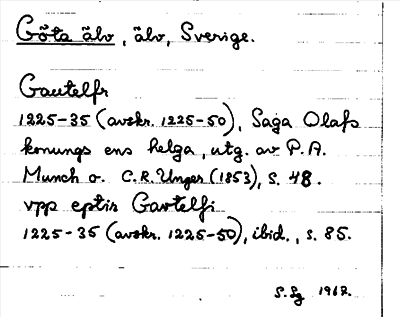 Göta älv, älv, Sverige.
Gautelfr
1225-35 (avskr. 1225-50), Saga Olafs
konungs ens helga, utg. av P. A.
Munch o. C. R. Unger (1853), s. 48.
vpp eptir Gavtelfi
1225-35 (avskr. 1225-50), ibid., s. 85.
S. Sg 1962.